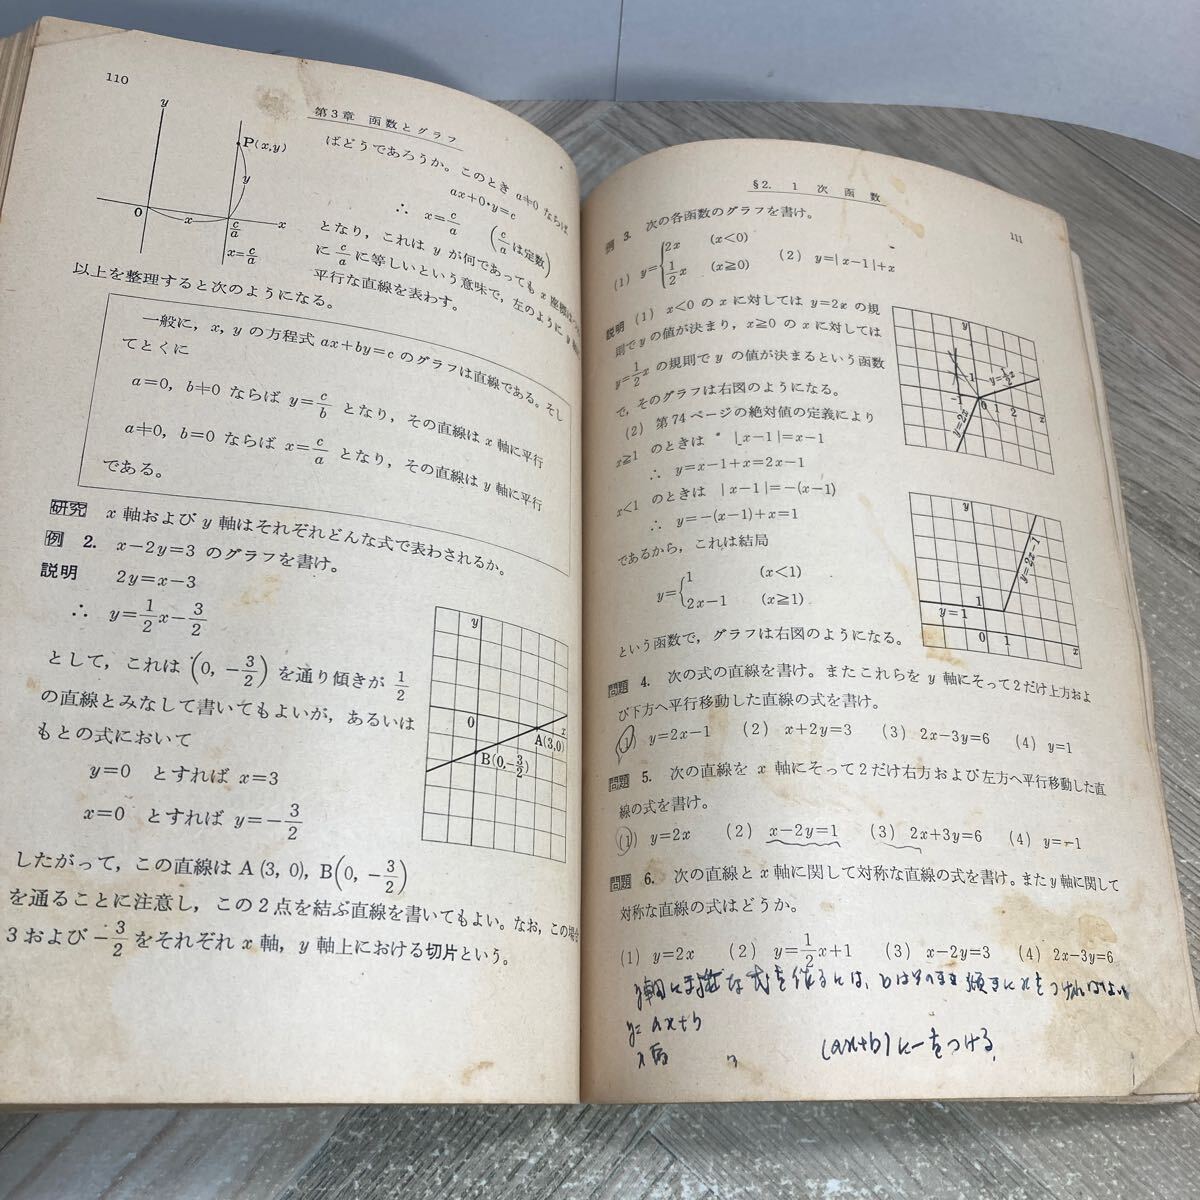 110
第3章 函数とグラフ
y
P(x,y)
y
0
x
c/a
x
x=c/a
ばどうであろうか。このとき a≠0 ならば
ax+0・y=c
∴ x=c/a (c/aは定数)
となり，これは y が何であっても x 座標は
に c/a に等しいという意味で，左のように y
平行な直線を表わす。
以上を整理すると次のようになる。
一般に，x, y の方程式 ax+by=c のグラフは直線である。そし
てとくに
a=0，b≠0 ならば y=c/b となり，その直線は x 軸に平行
a≠0，b=0 ならば x=c/a となり，その直線は y 軸に平行
である。
研究 x 軸および y 軸はそれぞれどんな式で表わされるか。
例 2. x−2y=3 のグラフを書け。
説明 2y=x−3
∴ y=1/2x−3/2
として，これは (0, −3/2) を通り傾きが 1/2
の直線とみなして書いてもよいが，あるいは
もとの式において
y=0 とすれば x=3
x=0 とすれば y=−3/2
y
0
x
A(3,0)
B(0,−3/2)
したがって，この直線は A (3, 0), B(0, −3/2)
を通ることに注意し，この2点を結ぶ直線を書いてもよい。なお，この場合
3および −3/2 をそれぞれ x 軸，y 軸上における切片という。
§2. 1 次 函 数
111
例 3. 次の各函数のグラフを書け。
(1) y={2x (x<0)
1/2x (x≧0)
(2) y=|x−1|+x
説明 (1) x<0 の x に対しては y=2x の規
則で y の値が決まり，x≧0 の x に対しては
y=1/2x の規則で y の値が決まるという函数
で，そのグラフは右図のようになる。
(2) 第74ページの絶対値の定義により
x≧1 のときは |x−1|=x−1
∴ y=x−1+x=2x−1
x<1 のときは |x−1|=−(x−1)
∴ y=−(x−1)+x=1
であるから，これは結局
y={1 (x<1)
2x−1 (x≧1)
という函数で，グラフは右図のようになる。
y
1
y=1/2x
−1
0 1 2
x
y=2x
y
y=2x−1
1
y=1
0 1
x
問題 4. 次の式の直線を書け。またこれらを y 軸にそって2だけ上方およ
び下方へ平行移動した直線の式を書け。
(1) y=2x−1 (2) x+2y=3 (3) 2x−3y=6 (4) y=1
問題 5. 次の直線を x 軸にそって2だけ右方および左方へ平行移動した直
線の式を書け。
(1) y=2x (2) x−2y=1 (3) 2x+3y=6 (4) y=−1
問題 6. 次の直線と x 軸に関して対称な直線の式を書け。また y 軸に関して
対称な直線の式はどうか。
(1) y=2x (2) y=1/2x+1 (3) x−2y=3 (4) 2x−3y=6
y軸に対称な式を作るには、bはそのまま
y=ax+b
(ax+b)に−をつける